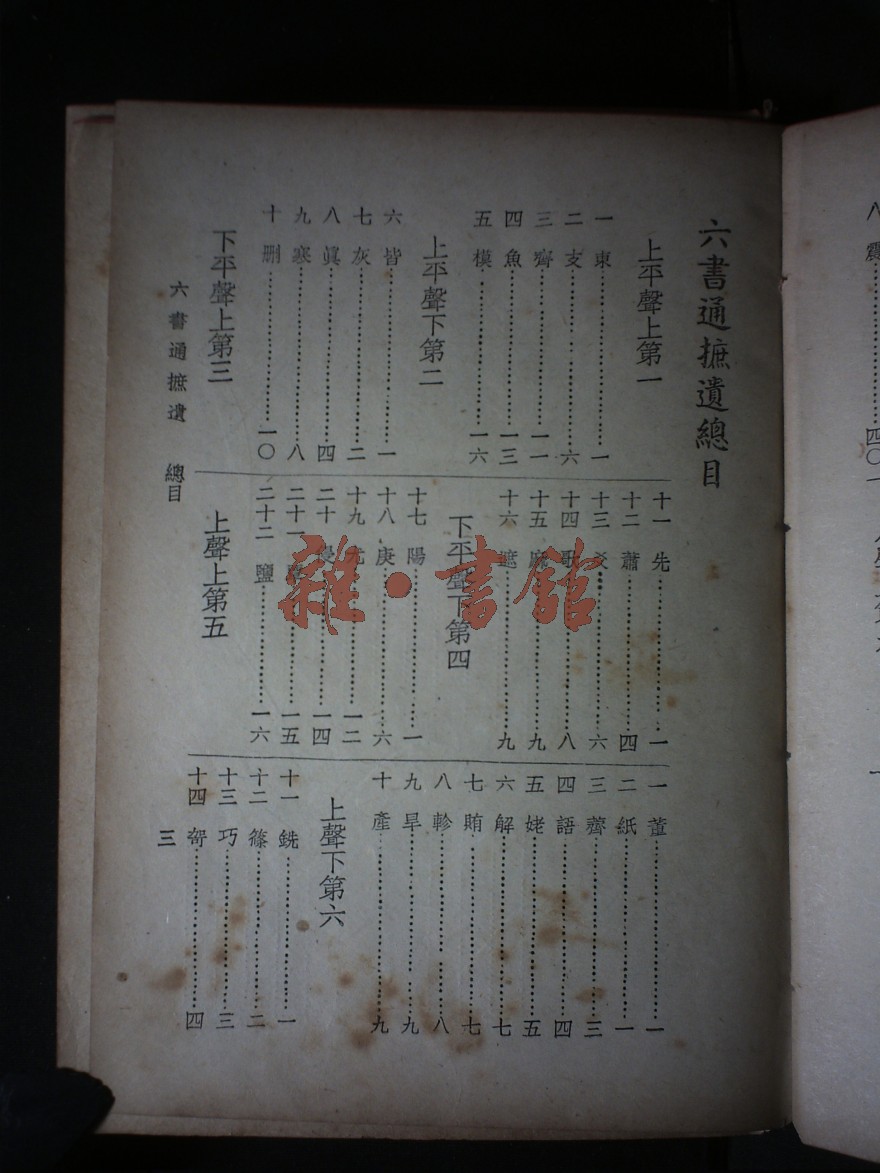 六書通摭遺總目
上平聲上第一
一 東……一
二 支……六
三 齊……一一
四 魚……一三
五 模……一六
上平聲下第二
六 皆……一
七 灰……二
八 眞……四
九 寒……八
十 刪……一〇
下平聲上第三
十一 先……一
十二 蕭……四
十三 爻……六
十四 歌……八
十五 麻……九
十六 遮……九
下平聲下第四
十七 陽……一
十八 庚……六
十九 尤……一二
二十 侵……一四
二十一……一五
二十二 鹽……一六
上聲上第五
一 董……一
二 紙……一
三 薺……三
四 語……四
五 姥……五
六 解……七
七 賄……七
八 軫……八
九 旱……九
十 產……九
上聲下第六
十一 銑……一
十二 篠……二
十三 巧……三
十四 哿……四
六書通摭遺 總目
三
雜·書館
八 震……四〇